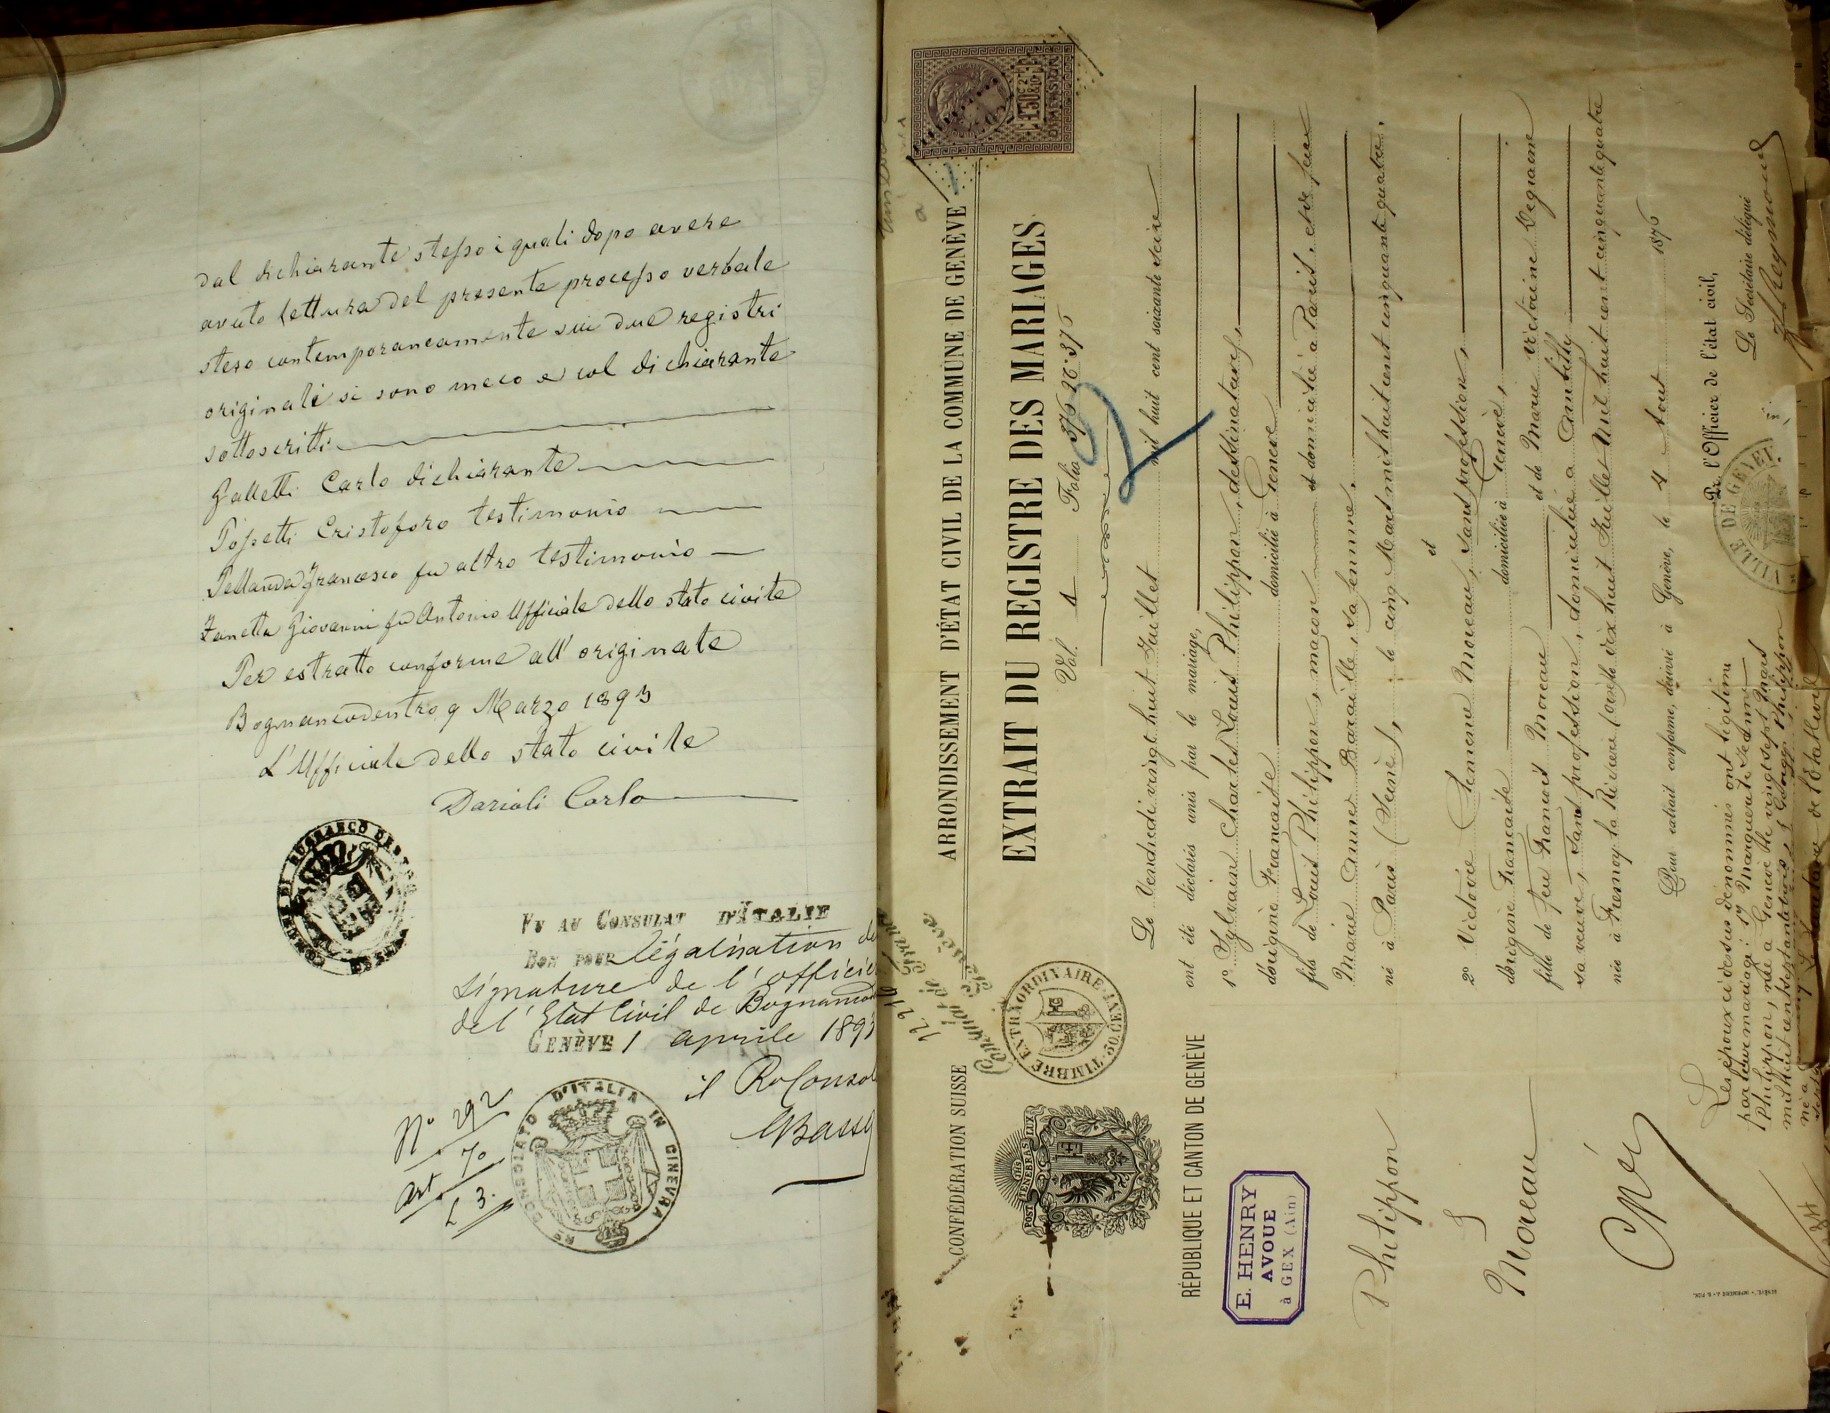 dal dichiarante stesso i quali dopo avere
avuto lettura del presente processo verbale
steso contemporaneamente sui due registri
originali si sono meco e col dichiarante
sottoscritti
Galletti Carlo dichiarante
Possetti Cristoforo testimonio
Pellanda Francesco fu altro testimonio
Zanetta Giovanni fu Antonio Ufficiale dello stato civile
Per estratto conforme all' originale
Bognancodentro 9 Marzo 1893
L'Ufficiale dello stato civile
Darioli Carlo
COMUNE DI BUGNANCO DENTRO
VU AU CONSULAT D'ITALIE
BON POUR légalisation de
signature de l' officier
de l' Etat Civil de Bognanco
GENÈVE 1 aprile 1893
il Ro Consol
GBasso
No 292
art. 70
L 3.
RO CONSOLATO D'ITALIA IN GINEVRA
ARRONDISSEMENT D'ÉTAT CIVIL DE LA COMMUNE DE GENÈVE
EXTRAIT DU REGISTRE DES MARIAGES
Vol. 4 Folio 375 No. 375
2
Le Vendredi vingt huit Juillet mil huit cent soixante & seize
ont été déclarés unis par le mariage,
1o Sylvain Charles Louis Philippon, destinateur,
d'origine Française domicilié à Genève
fils de Louis Philippon, maçon et domicilié à Paris, et de feu
Marie Anne Bataille, sa femme.
né à Paris (Seine), le cinq Mars mil huit cent cinquante quatre.
et
2o Victoire Clémence Moreau, sans profession,
d'origine Française domiciliée à Genève,
fille de feu François Moreau et de Marie Victoine Degraine
sa veuve, sans profession, domiciliée à Chantilly
née à Fresnoy la Rivière (Oise) le dix huit Juillet mil huit cent cinquante quatre
Pour extrait conforme, délivré à Genève, le 4 Août 1876
Pr l'Officier de l'état civil,
Le Secrétaire délégué
VILLE DE GENÈVE
CONFÉDÉRATION SUISSE
POST TENEBRAS LUX
RÉPUBLIQUE ET CANTON DE GENÈVE
TIMBRE EXTRAORDINAIRE 50 CENT.
E. HENRY
AVOUÉ
à GEX (Ain)
Philippon
&
Moreau
Les époux ci dessus dénommés ont légitimé
par leur mariage: 1o Marguerite Jeanne
Philippon, née à Genève le vingt sept Mars
mil huit cent soixante & George Philippon